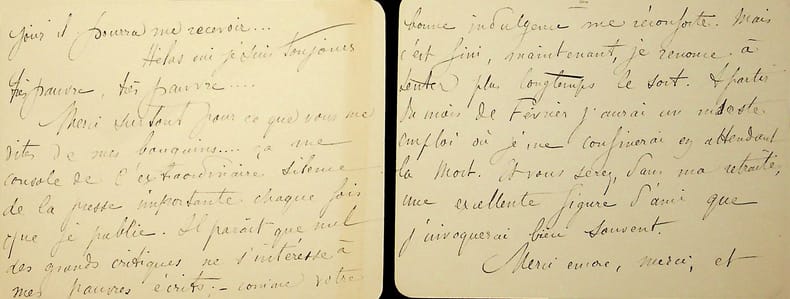 jour il pourra me recevoir...
Hélas oui je suis toujours
très pauvre, très pauvre....
Merci surtout pour ce que vous me
dites de mes bouquins... ça me
console de l'extraordinaire silence
de la presse importante chaque fois
que je publie. Il paraît que nul
des grands critiques ne s'intéresse à
mes pauvres écrits; - comme votre
bonne indulgence me réconforte. Mais
c'est fini, maintenant, je renonce à
tenter plus longtemps le sort. A partir
du mois de Février j'aurai un modeste
emploi où je me confinerai en attendant
la Mort. Et vous serez, dans ma retraite,
une excellente figure d'ami que
j'invoquerai bien souvent.
Merci encore, merci, et